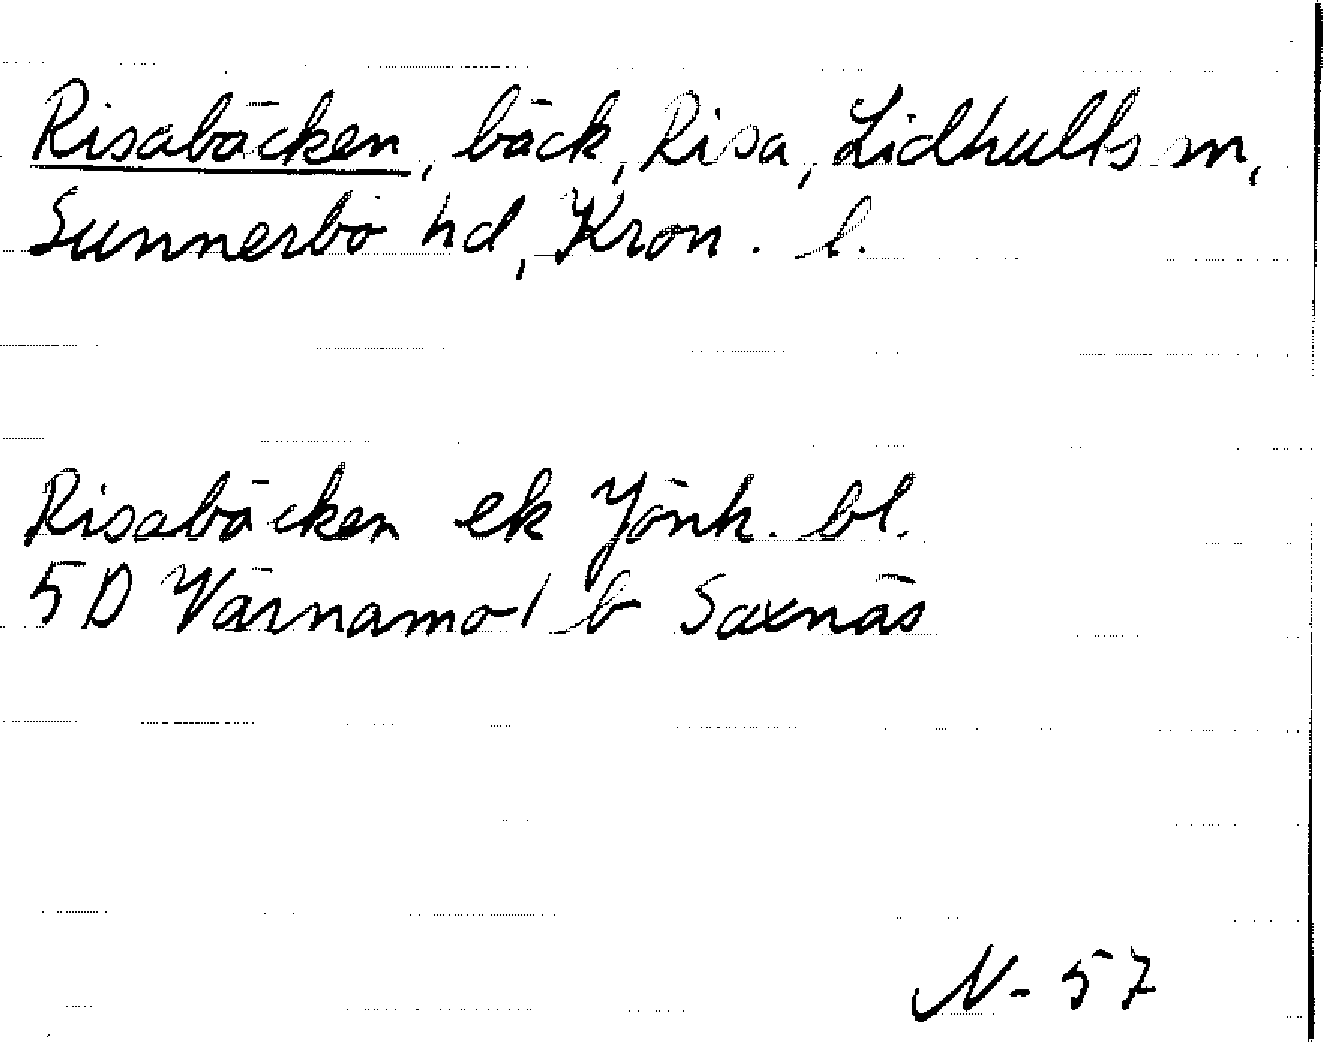 Risabäcken, bäck, Risa, Lidhults sn,
Sunnerbo hd, Kron. l.
Risabäcken ek Jönk. bl.
5D Värnamo 1 b Saxnäs
N-57